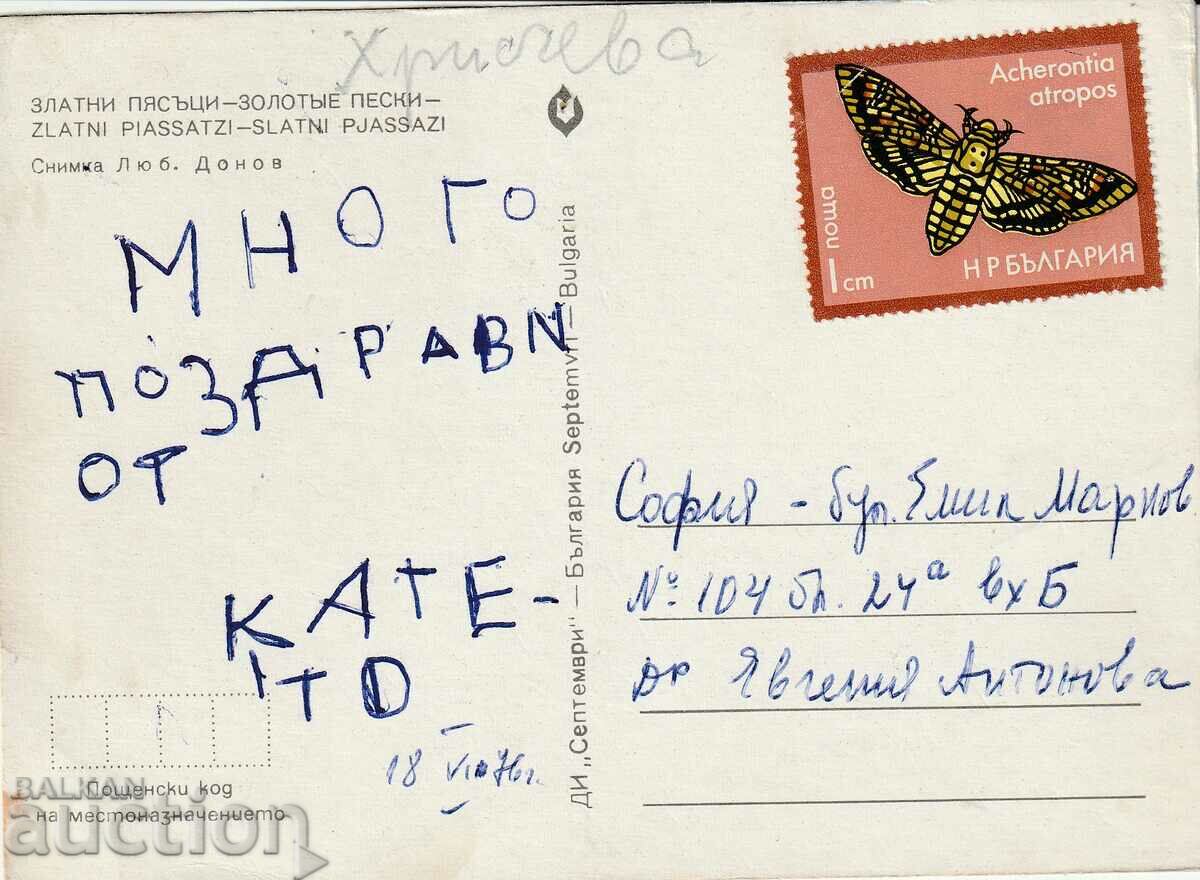 Христева
ЗЛАТНИ ПЯСЪЦИ—ЗОЛОТЫЕ ПЕСКИ—
ZLATNI PIASSATZI—SLATNI PJASSAZI
Снимка Люб. Донов
МНОГО
ПОЗДРАВИ
ОТ
КАТЕ-
ТО
18 76г.
Пощенски код
на местоназначението
ДИ „Септември" — България Septemvri — Bulgaria
Acherontia
atropos
поща
1 ст
НР БЪЛГАРИЯ
София - бул. Емил Марков
№ 104 бл. 24а вх Б
др Явгения Антонова
BALKAN
auction